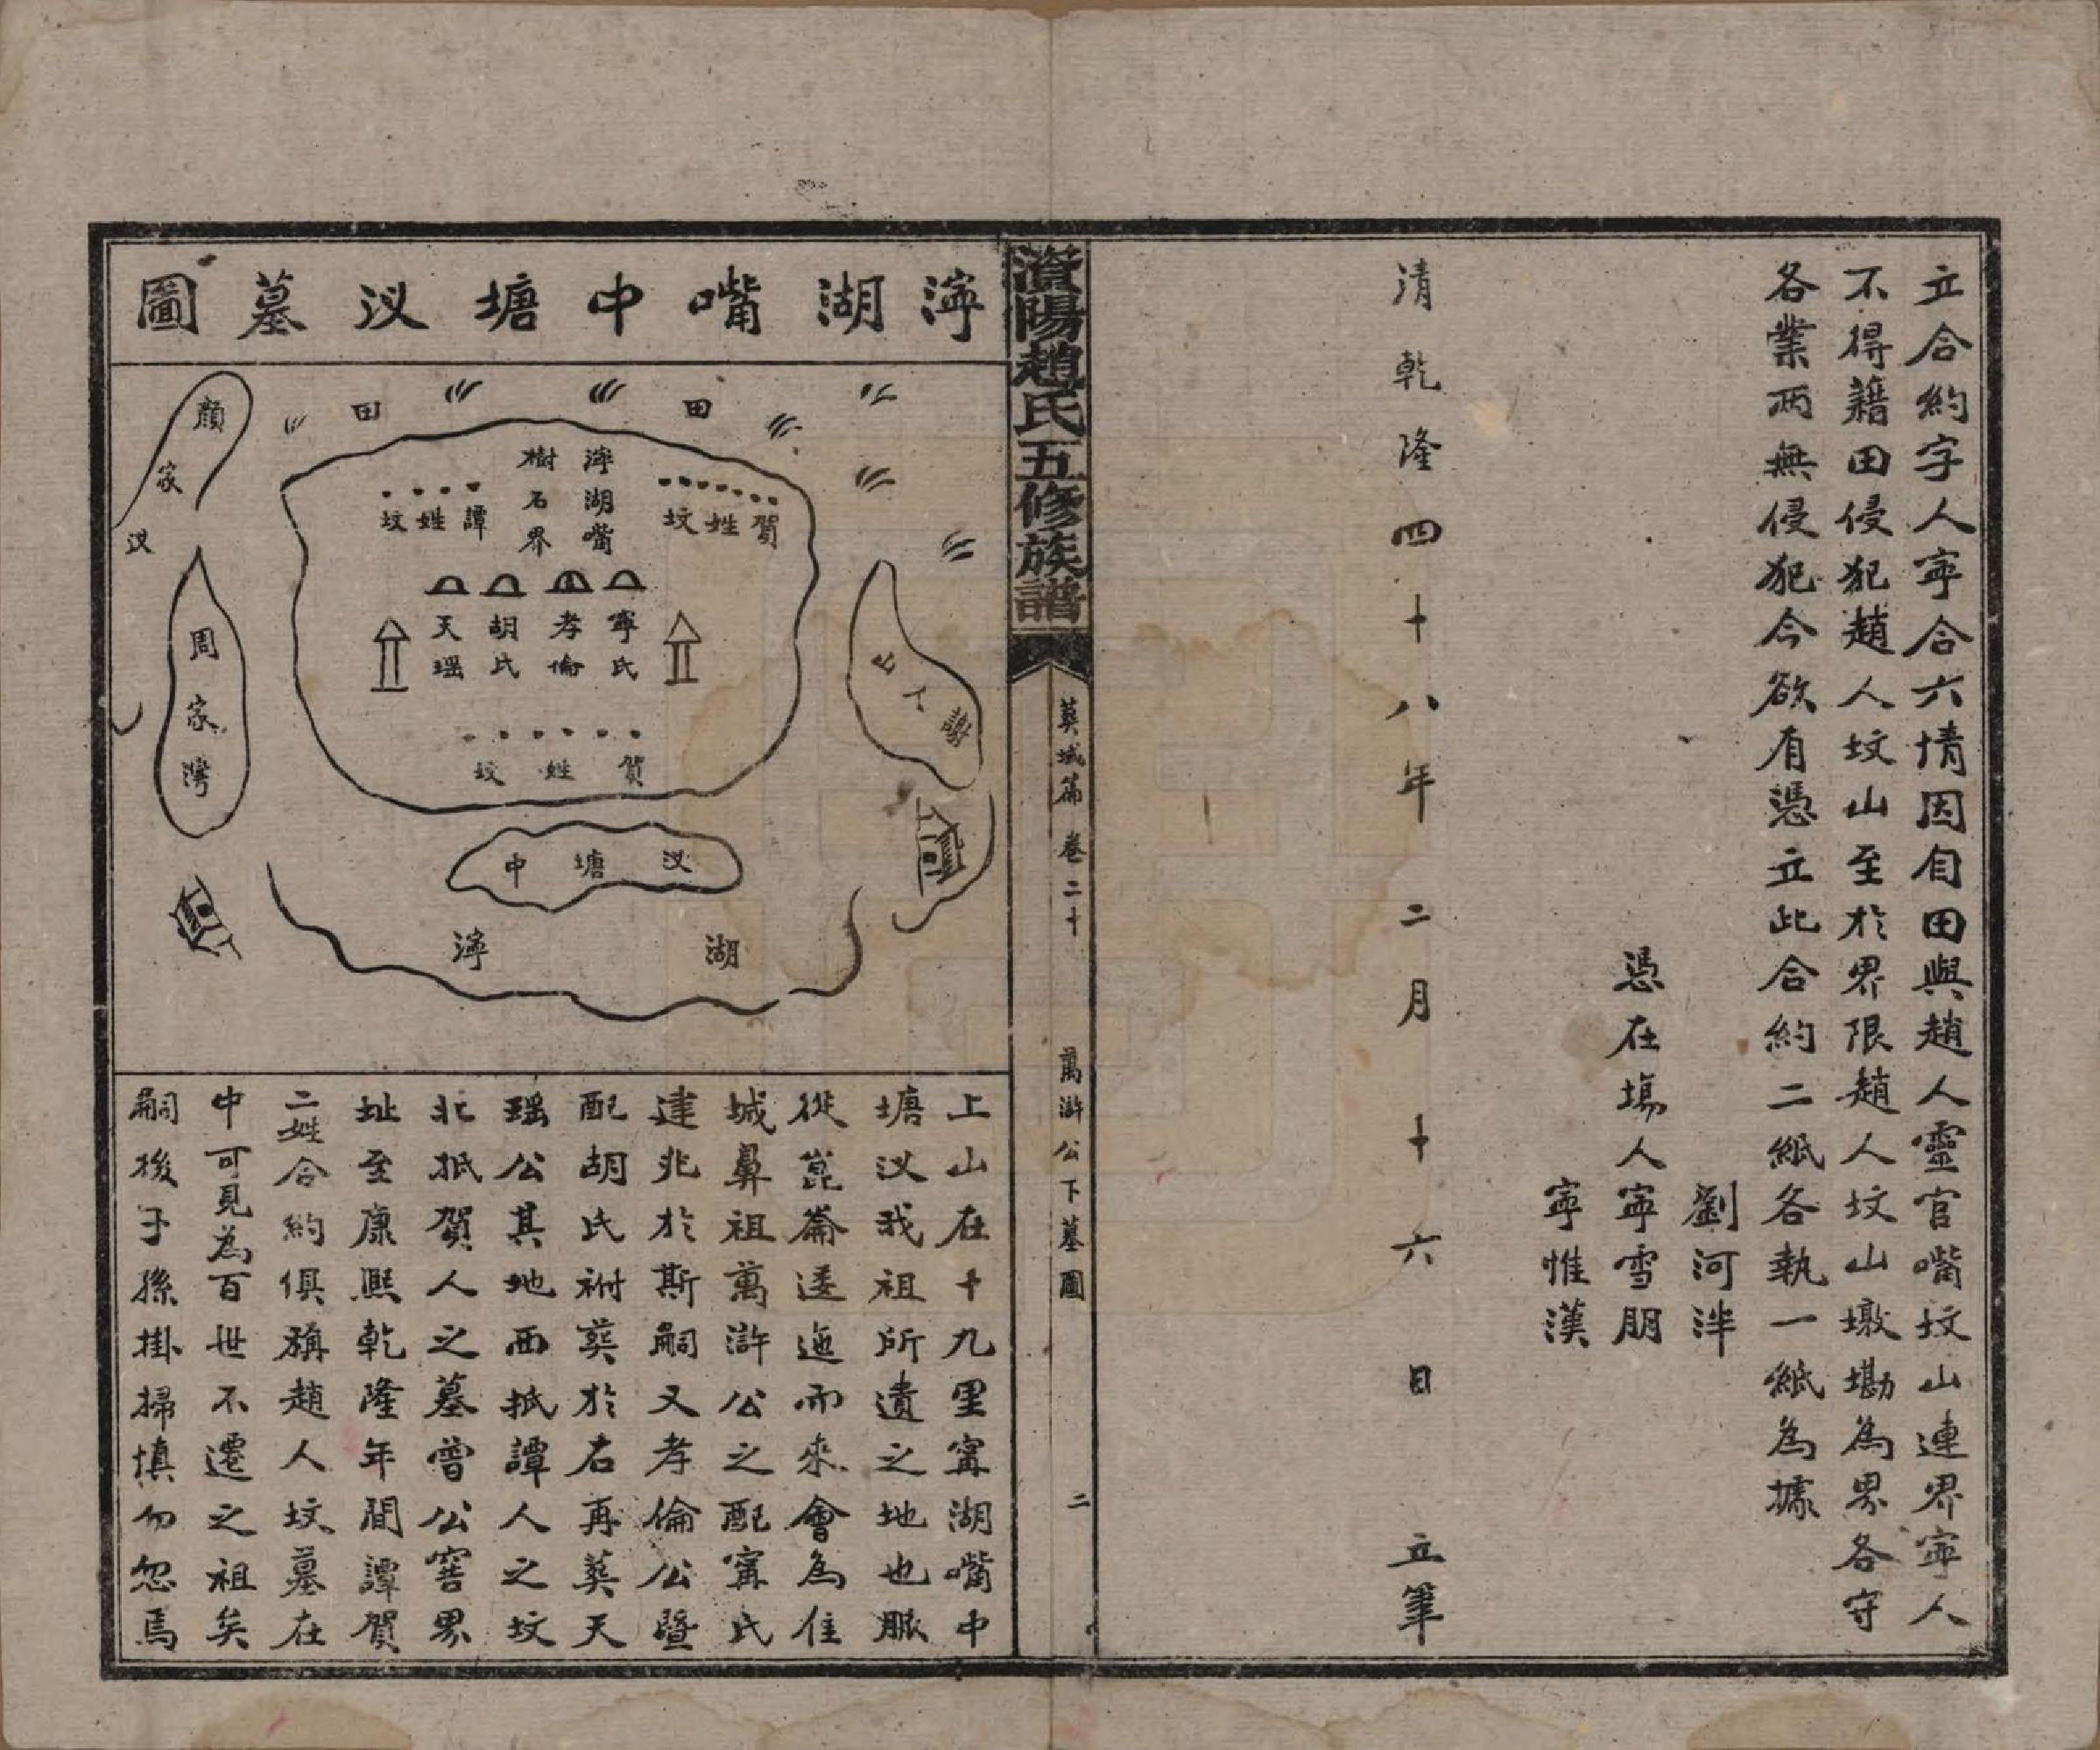 立合約字人寧合六情因自田與趙人靈官嘴坟山連界寧人
不得藉田侵犯趙人坟山至於界限趙人坟山墩勘為界各守
各業兩無侵犯今欲有憑立此合約二紙各執一紙為據
劉河泮
憑在場人寧雪朋
寧惟漢
清乾隆四十八年二月十六日 立筆
資陽趙氏五修族譜
塟域篇 卷二十
萬滸公下墓圖
二
濘湖嘴中塘汊墓圖
田
田
濘湖嘴
樹石界
賀姓坟
譚姓坟
寧氏
孝倫
胡氏
天瑶
賀姓坟
顏家汊
周家灣
汊塘中
湖
濘
上山在十九里寗湖嘴中
塘汊我祖所遺之地也脈
從崑崙逶迤而來會為佳
城鼻祖萬滸公之配寗氏
建兆於斯嗣又孝倫公暨
配胡氏祔塟於右再塟天
瑶公其地西抵譚人之坟
北抵賀人之墓曾公窖界
址至康熙乾隆年間譚賀
二姓合約俱稱趙人坟墓在
中可見為百世不遷之祖矣
嗣後子孫掛掃慎勿忽焉